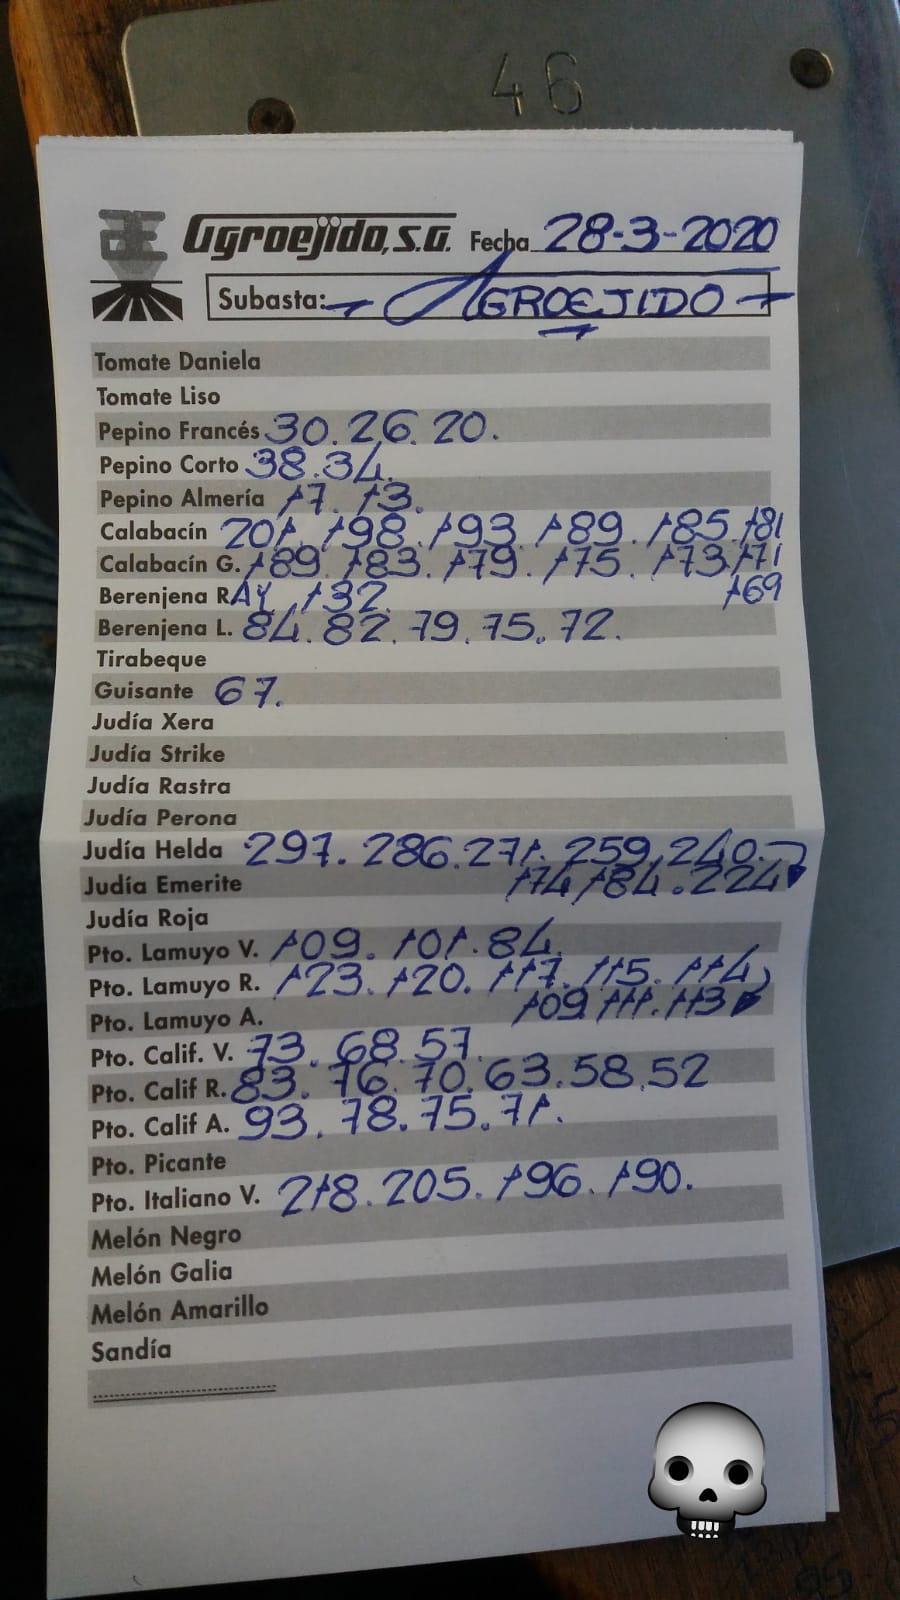 46
Agroejido, S.A. Fecha 28-3-2020
Subasta: AGROEJIDO
Tomate Daniela
Tomate Liso
Pepino Francés 30. 26. 20.
Pepino Corto 38. 34.
Pepino Almería 17. 13.
Calabacín 201. 198. 193. 189. 185. 181
Calabacín G. 189. 183. 179. 175. 173. 171
169
Berenjena RAY 132.
Berenjena L. 84. 82. 79. 75. 72.
Tirabeque
Guisante 67.
Judía Xera
Judía Strike
Judía Rastra
Judía Perona
Judía Helda 297. 286. 271. 259. 240.
Judía Emerite 174 184. 224
Judía Roja
Pto. Lamuyo V. 109. 101. 84.
Pto. Lamuyo R. 123. 120. 117. 115. 114
Pto. Lamuyo A. 109 111. 113
Pto. Calif. V. 73. 68. 57.
Pto. Calif R. 83. 76. 70. 63. 58. 52
Pto. Calif A. 93. 78. 75. 71.
Pto. Picante
Pto. Italiano V. 218. 205. 196. 190.
Melón Negro
Melón Galia
Melón Amarillo
Sandía